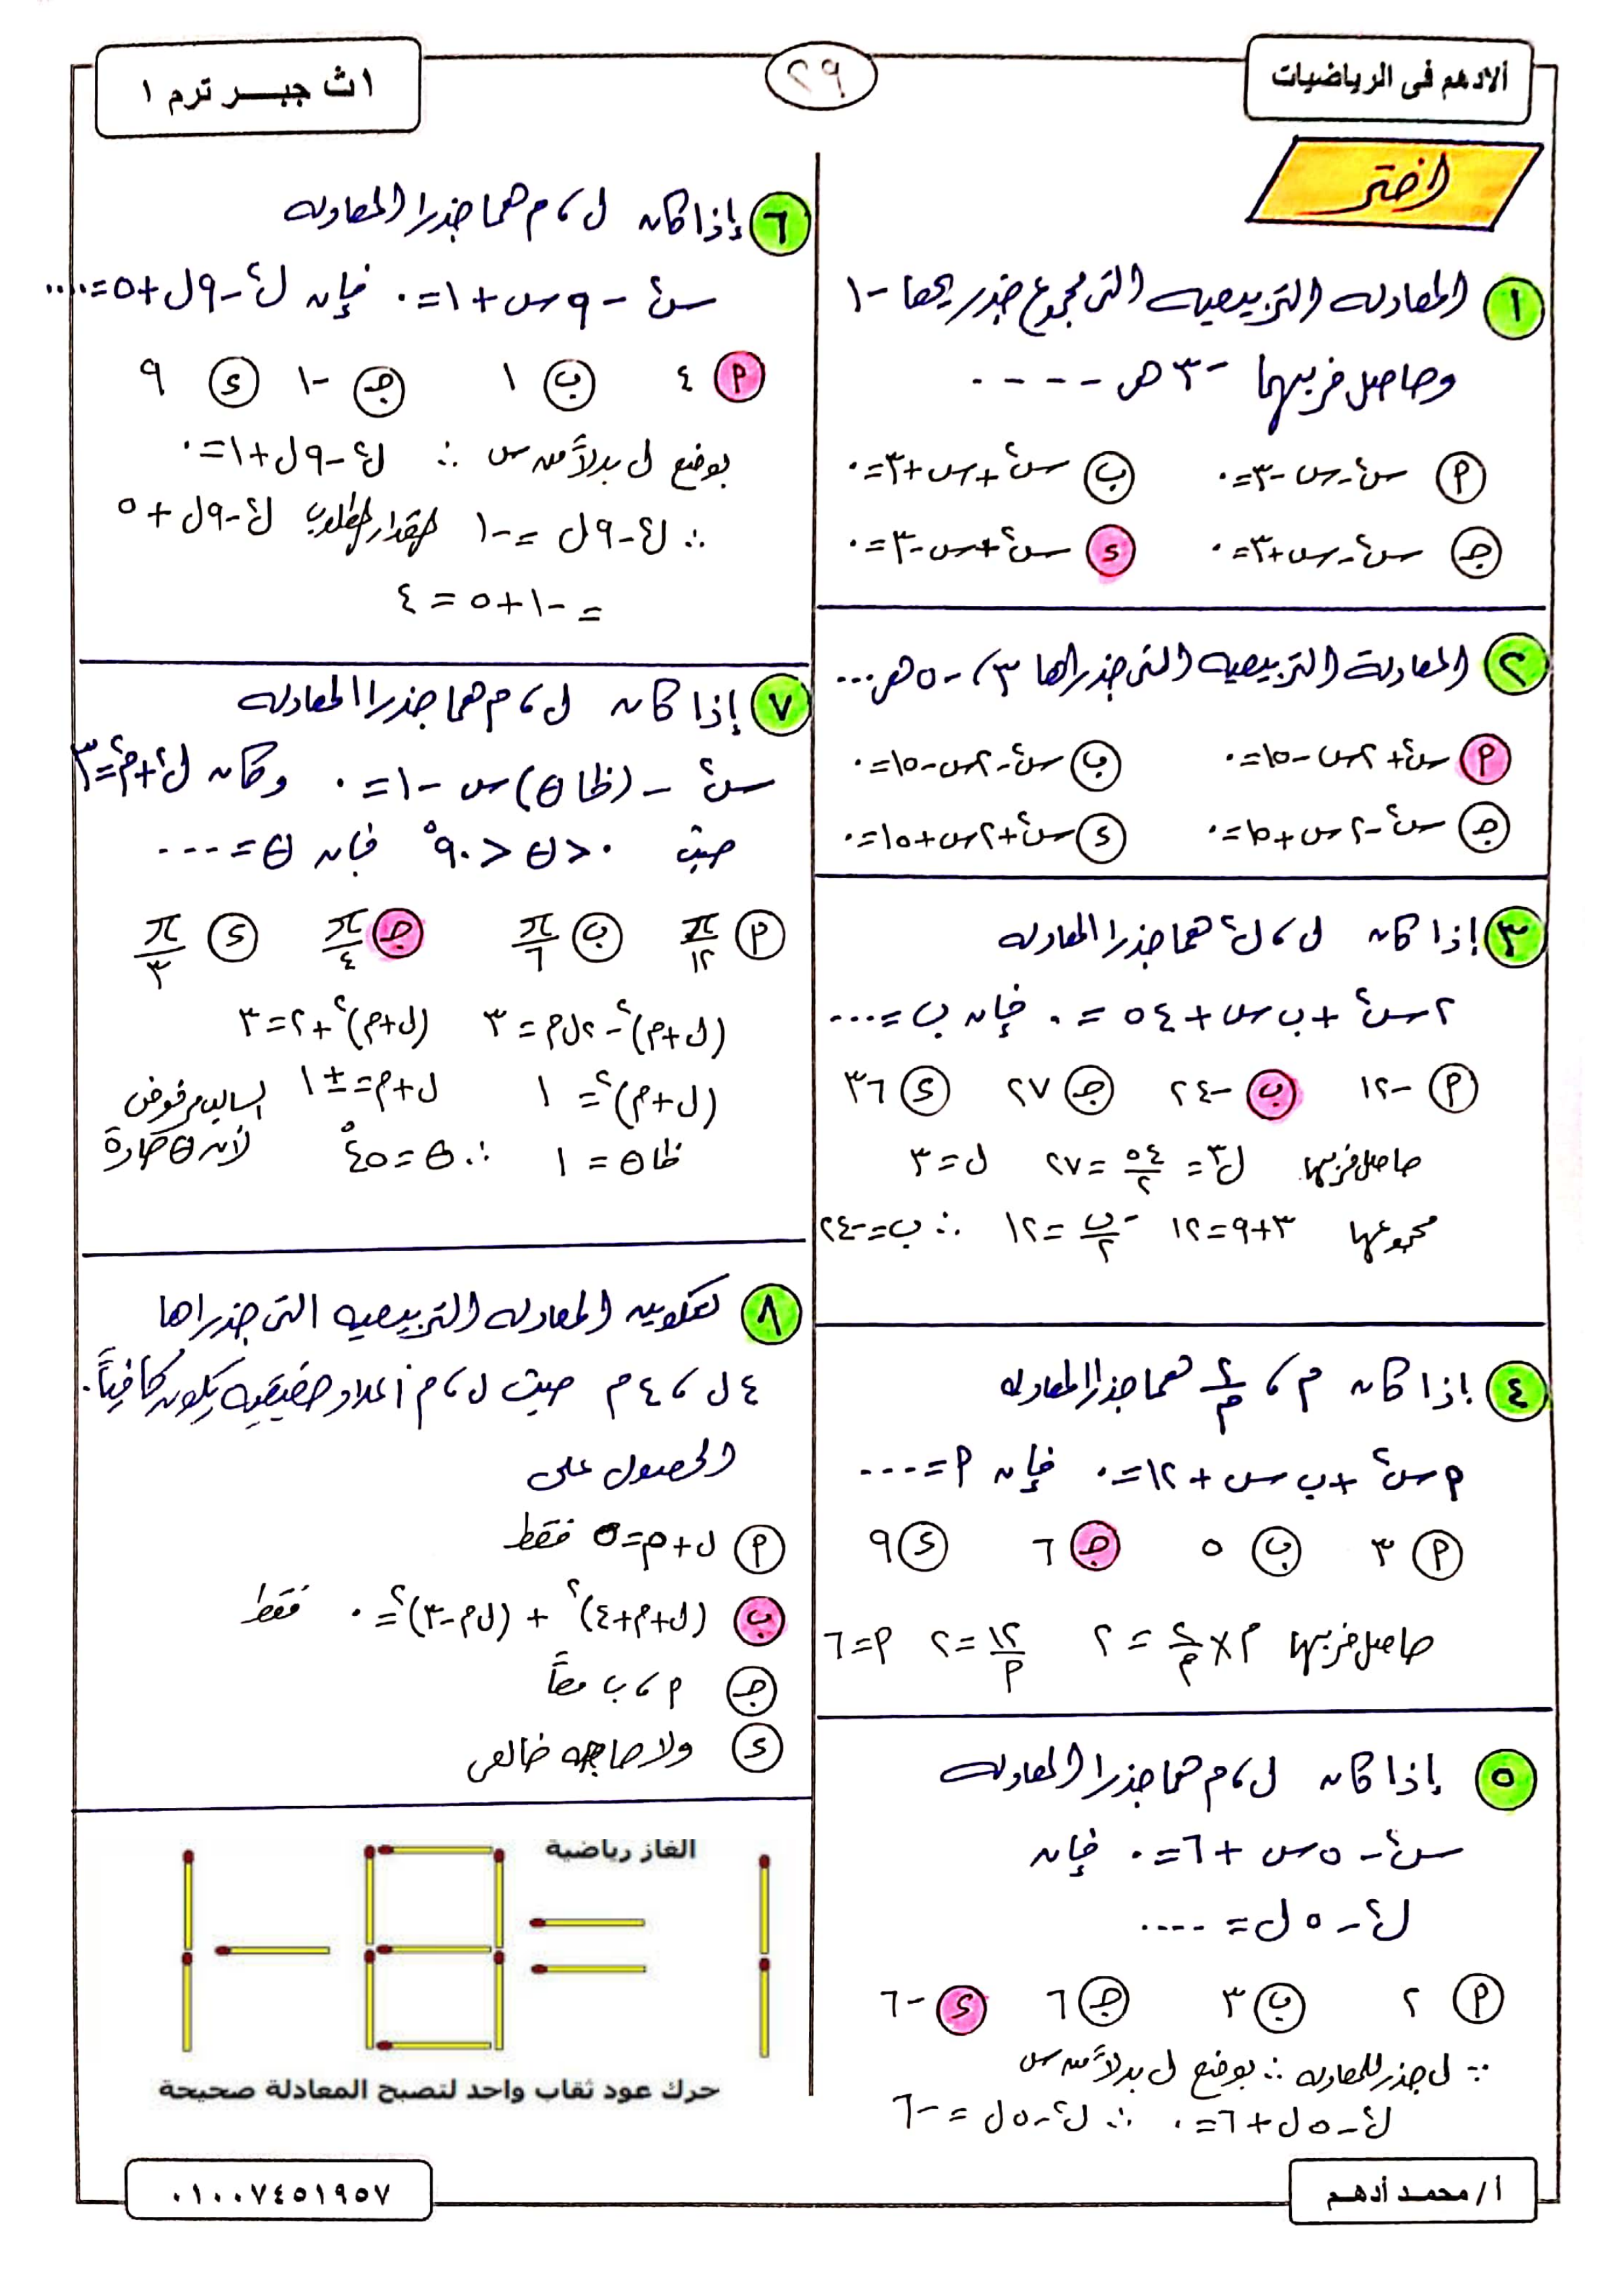 ألادهم فى الرياضيات
٢٩
١ث جبـــر ترم ١
اختر
١ المعادلة التربيعية التى مجموع جذريها -١
وحاصل ضربهما -٣ هى ----
أ س٢-س-٣=٠ ب س٢+س+٣=٠
جـ س٢-س+٣=٠ د س٢+س-٣=٠
٢ المعادلة التربيعية التى جذراها ٣، -٥ هى...
أ س٢+٢س-١٥=٠ ب س٢-٢س-١٥=٠
جـ س٢-٢س+١٥=٠ د س٢+٢س+١٥=٠
٣ إذا كان ل، ل٢ هما جذرا المعادلة
٢س٢+ب س+٥٤=٠ فإن ب=...
أ -١٢ ب -٢٤ جـ ٢٧ د ٣٦
حاصل ضربهما ل٣=٥٤/٢=٢٧ ل=٣
مجموعهما ٣+٩=١٢ -ب/٢=١٢ ∴ ب=-٢٤
٤ إذا كان م، ٢/م هما جذرا المعادلة
أس٢+ب س+١٢=٠ فإن أ=---
أ ٣ ب ٥ جـ ٦ د ٩
حاصل ضربهما م×٢/م=٢ ١٢/أ=٢ أ=٦
٥ إذا كان ل، م هما جذرا المعادلة
س٢-٥س+٦=٠ فإن
ل٢-٥ل=----
أ ٢ ب ٣ جـ ٦ د -٦
∵ ل جذر للمعادلة ∴ بوضع ل بدلاً من س
ل٢-٥ل+٦=٠ ∴ ل٢-٥ل=-٦
٦ إذا كان ل، م هما جذرا المعادلة
س٢-٩س+١=٠ فإن ل٢-٩ل+٥=....
أ ٤ ب ١ جـ -١ د ٩
بوضع ل بدلاً من س ∴ ل٢-٩ل+١=٠
∴ ل٢-٩ل=-١ المقدار المطلوب ل٢-٩ل+٥
=-١+٥=٤
٧ إذا كان ل، م هما جذرا المعادلة
س٢-(ظا θ)س-١=٠ وكان ل٢+م٢=٣
حيث ٠<θ<٩٠° فإن θ=---
أ π/١٢ ب π/٦ جـ π/٤ د π/٣
(ل+م)٢-٢ل م=٣ (ل+م)٢+٢=٣
(ل+م)٢=١ ل+م=±١ السالب مرفوض
ظا θ=١ ∴ θ=٤٥° لأن θ حادة
٨ لتكوين المعادلة التربيعية التى جذراها
٤ل، ٤م حيث ل، م أعداد حقيقية يكون كافياً
الحصول على
أ ل+م=٥ فقط
ب (ل+م+٤)٢+(ل م-٣)٢=٠ فقط
جـ أ، ب معاً
د ولا حاجه خالص
الغاز رياضية
١ = 8 - ١
حرك عود ثقاب واحد لتصبح المعادلة صحيحة
أ/ محمـد أدهـم
٠١٠٠٧٤٥١٩٥٧